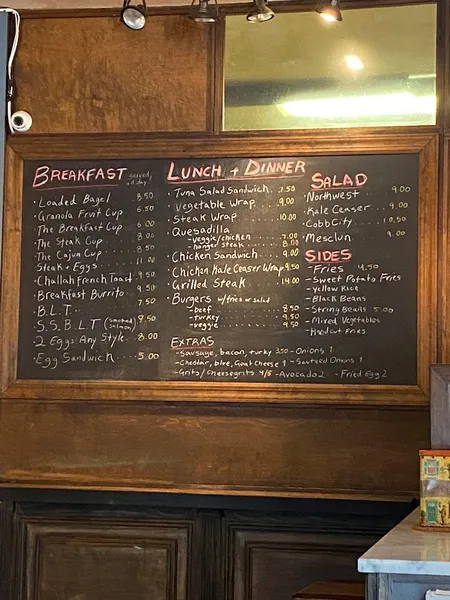 BREAKFAST served all day!
· Loaded Bagel 8.50
· Granola Fruit Cup 6.50
· The Breakfast Cup 6.00
· The Steak Cup 8.00
· The Cajun Cup 8.50
· Steak + Eggs 11.00
· Challah French Toast 9.50
· Breakfast Burrito 9.50
· B.L.T. 7.50
· S.S.B.L.T (smoked salmon) 9.50
· 2 Eggs Any Style 8.00
· Egg Sandwich 5.00
LUNCH + DINNER
· Tuna Salad Sandwich 7.50
· Vegetable Wrap 9.00
· Steak Wrap 10.00
· Quesadilla
- veggie/chicken 7.00
- hanger steak 8.00
· Chicken Sandwich 9.00
· Chicken Kale Ceaser Wrap 9.50
· Grilled Steak 14.00
· Burgers w/fries or salad
- beef 8.50
- turkey 9.50
- veggie 9.50
EXTRAS
- Sausage, bacon, turky 3.50 - Onions 1
- Chedar, blue, Goat Cheese 1 - Sauteed Onions 1
- Grits/Cheesegrits 4/5 - Avocado 2 - Fried Egg 2
SALAD
· Northwest 9.00
· Kale Ceaser 9.00
· Cobb City 10.50
· Mesclun 9.00
SIDES
- Fries 4.50
- Sweet Potato Fries
- Yellow Rice
- Black Beans
- String Beans 5.00
- Mixed Vegetables
- Fries